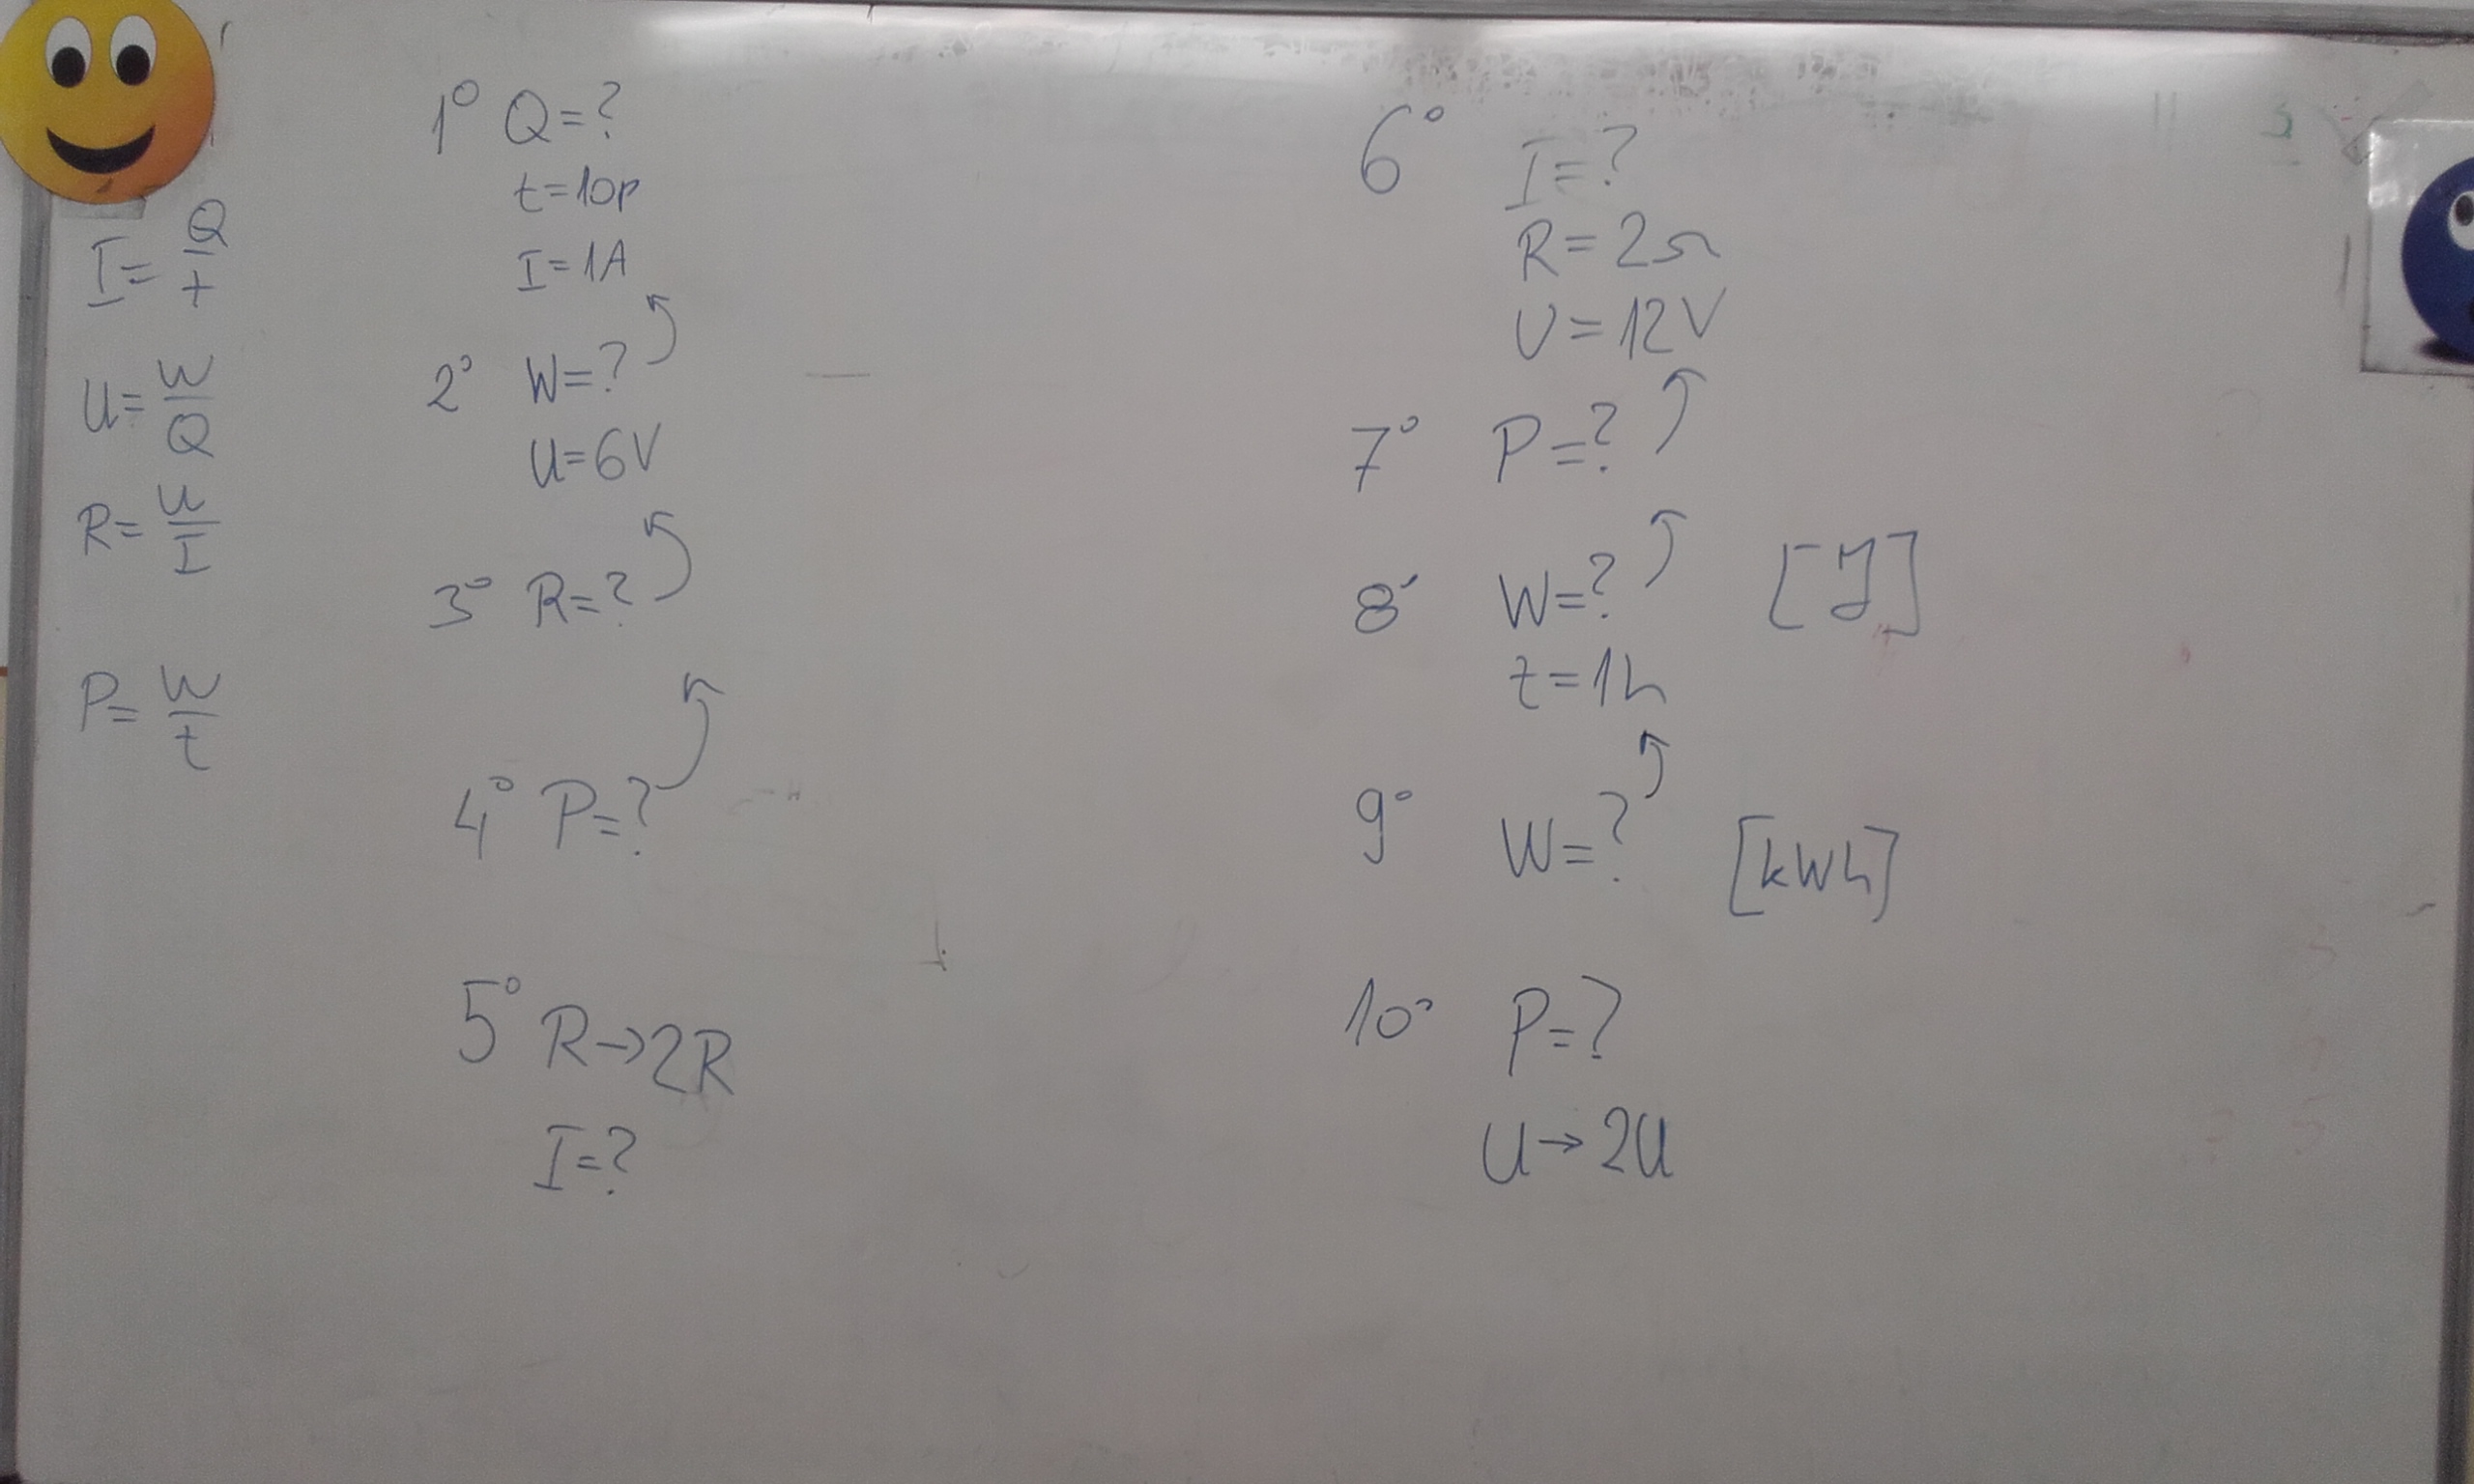 I = Q/t
U = W/Q
R = U/I
P = W/t
1° Q = ?
t = 10p
I = 1A
2° W = ?
U = 6V
3° R = ?
4° P = ?
5° R → 2R
I = ?
6° I = ?
R = 2Ω
U = 12V
7° P = ?
8° W = ? [J]
t = 1h
9° W = ? [kWh]
10° P = ?
U → 2U